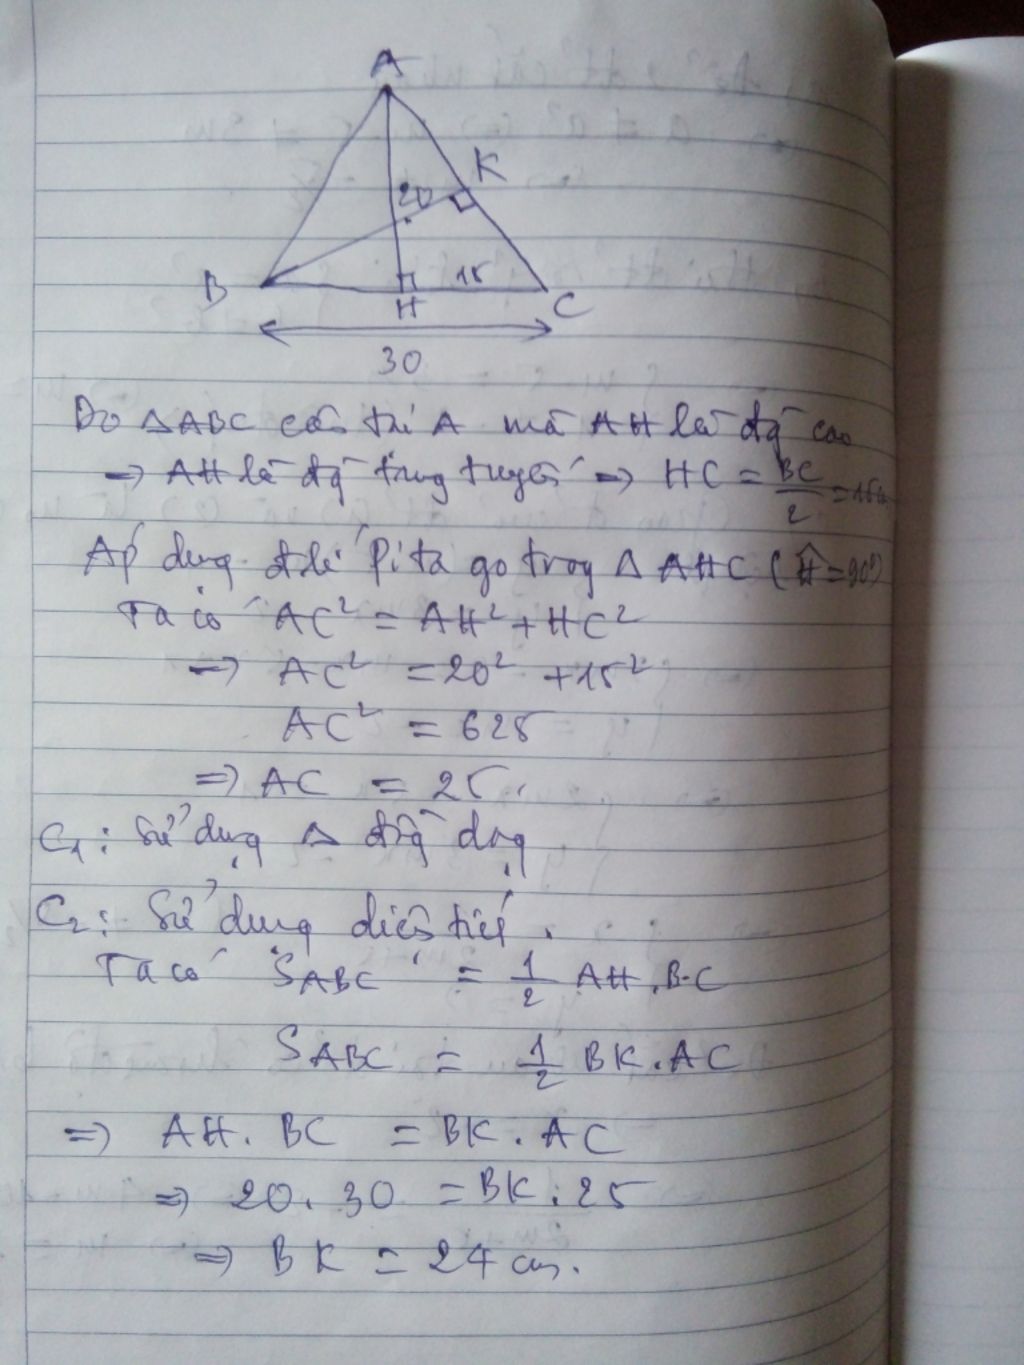 A
K
20
B
H
15
C
30
Do △ABC cân tại A mà AH là đg cao
⇒ AH là đg trung tuyến ⇒ HC = BC/2 = 15cm
Áp dụng đlí Pi ta go trog △ AHC (Ĥ=90°)
Ta có AC² = AH² + HC²
⇒ AC² = 20² + 15²
AC² = 625
⇒ AC = 25.
C1: Sử dụng △ đồg dạg
C2: Sử dụng diện tích.
Ta có S ABC = 1/2 AH . BC
S ABC = 1/2 BK . AC
⇒ AH . BC = BK . AC
⇒ 20 . 30 = BK . 25
⇒ BK = 24 cm.